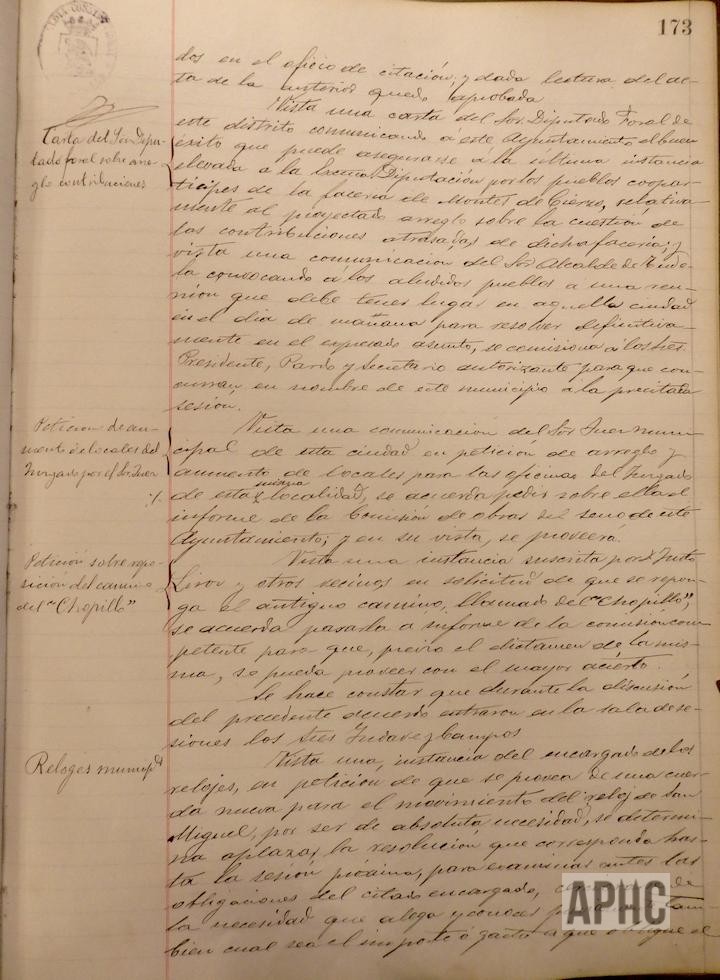 173
dos en el oficio de citación; y dada lectura del ac-
ta de la anterior quedó aprobada
Vista una carta del Sor. Diputado Foral de
este distrito comunicando á este Ayuntamiento el buen
éxito que puede asegurarse á la ultima instancia
elevada a la Excma Diputación por los pueblos copar-
tícipes de la facería de Montes de Cierzo, relativa-
mente al proyectado arreglo sobre la cuestión de
las contribuciones atrasadas de dicha facería; y
vista una comunicación del Sor. Alcalde de Tude-
la convocando á los aludidos pueblos a una reu-
nión que debe tener lugar en aquella ciudad
en el dia de mañana para resolver definitiva-
mente en el expresado asunto, se comisiona á los Sres.
Presidente, Pardo y Secretario autorizante para que con-
curran, en nombre de este municipio á la precitada
sesión.
Vista una comunicación del Sor. Juez muni-
cipal de esta ciudad en petición de arreglo y
aumento de locales para las oficinas del Juzgado
de esta misma localidad, se acuerda pedir sobre ella el
informe de la Comisión de obras del seno de este
Ayuntamiento; y en su vista, se proveerá.
Vista una instancia suscrita por D. Justo
Liroz y otros vecinos en solicitud de que se repon-
ga el antiguo camino, llamado del "Chopillo",
se acuerda pasarla a informe de la comisión com-
petente para que, previo el dictamen de la mis-
ma, se pueda proveer con el mayor acierto.
Se hace constar que durante la discusión
del precedente acuerdo entraron en la sala de se-
siones los Sres y Campos
Vista una instancia del encargado de los
relojes, en petición de que se provea de una cuer-
da nueva para el movimiento del reloj de San
Miguel, por ser de absoluta necesidad, se determi-
na aplazar la resolución que corresponda has-
ta la sesión próxima, para examinar antes las
obligaciones del citado encargado, de
la necesidad que alega y conocer tam-
bien cual sea el importe ó gasto a que obligue el
Carta del Sor. Dipu-
tado foral sobre arre-
glo contribuciones
Petición de au-
mento de locales del
Juzgado por el Sr. Juez
Petición sobre repo-
sición del camino
del "Chopillo"
Reloges municips
APHC